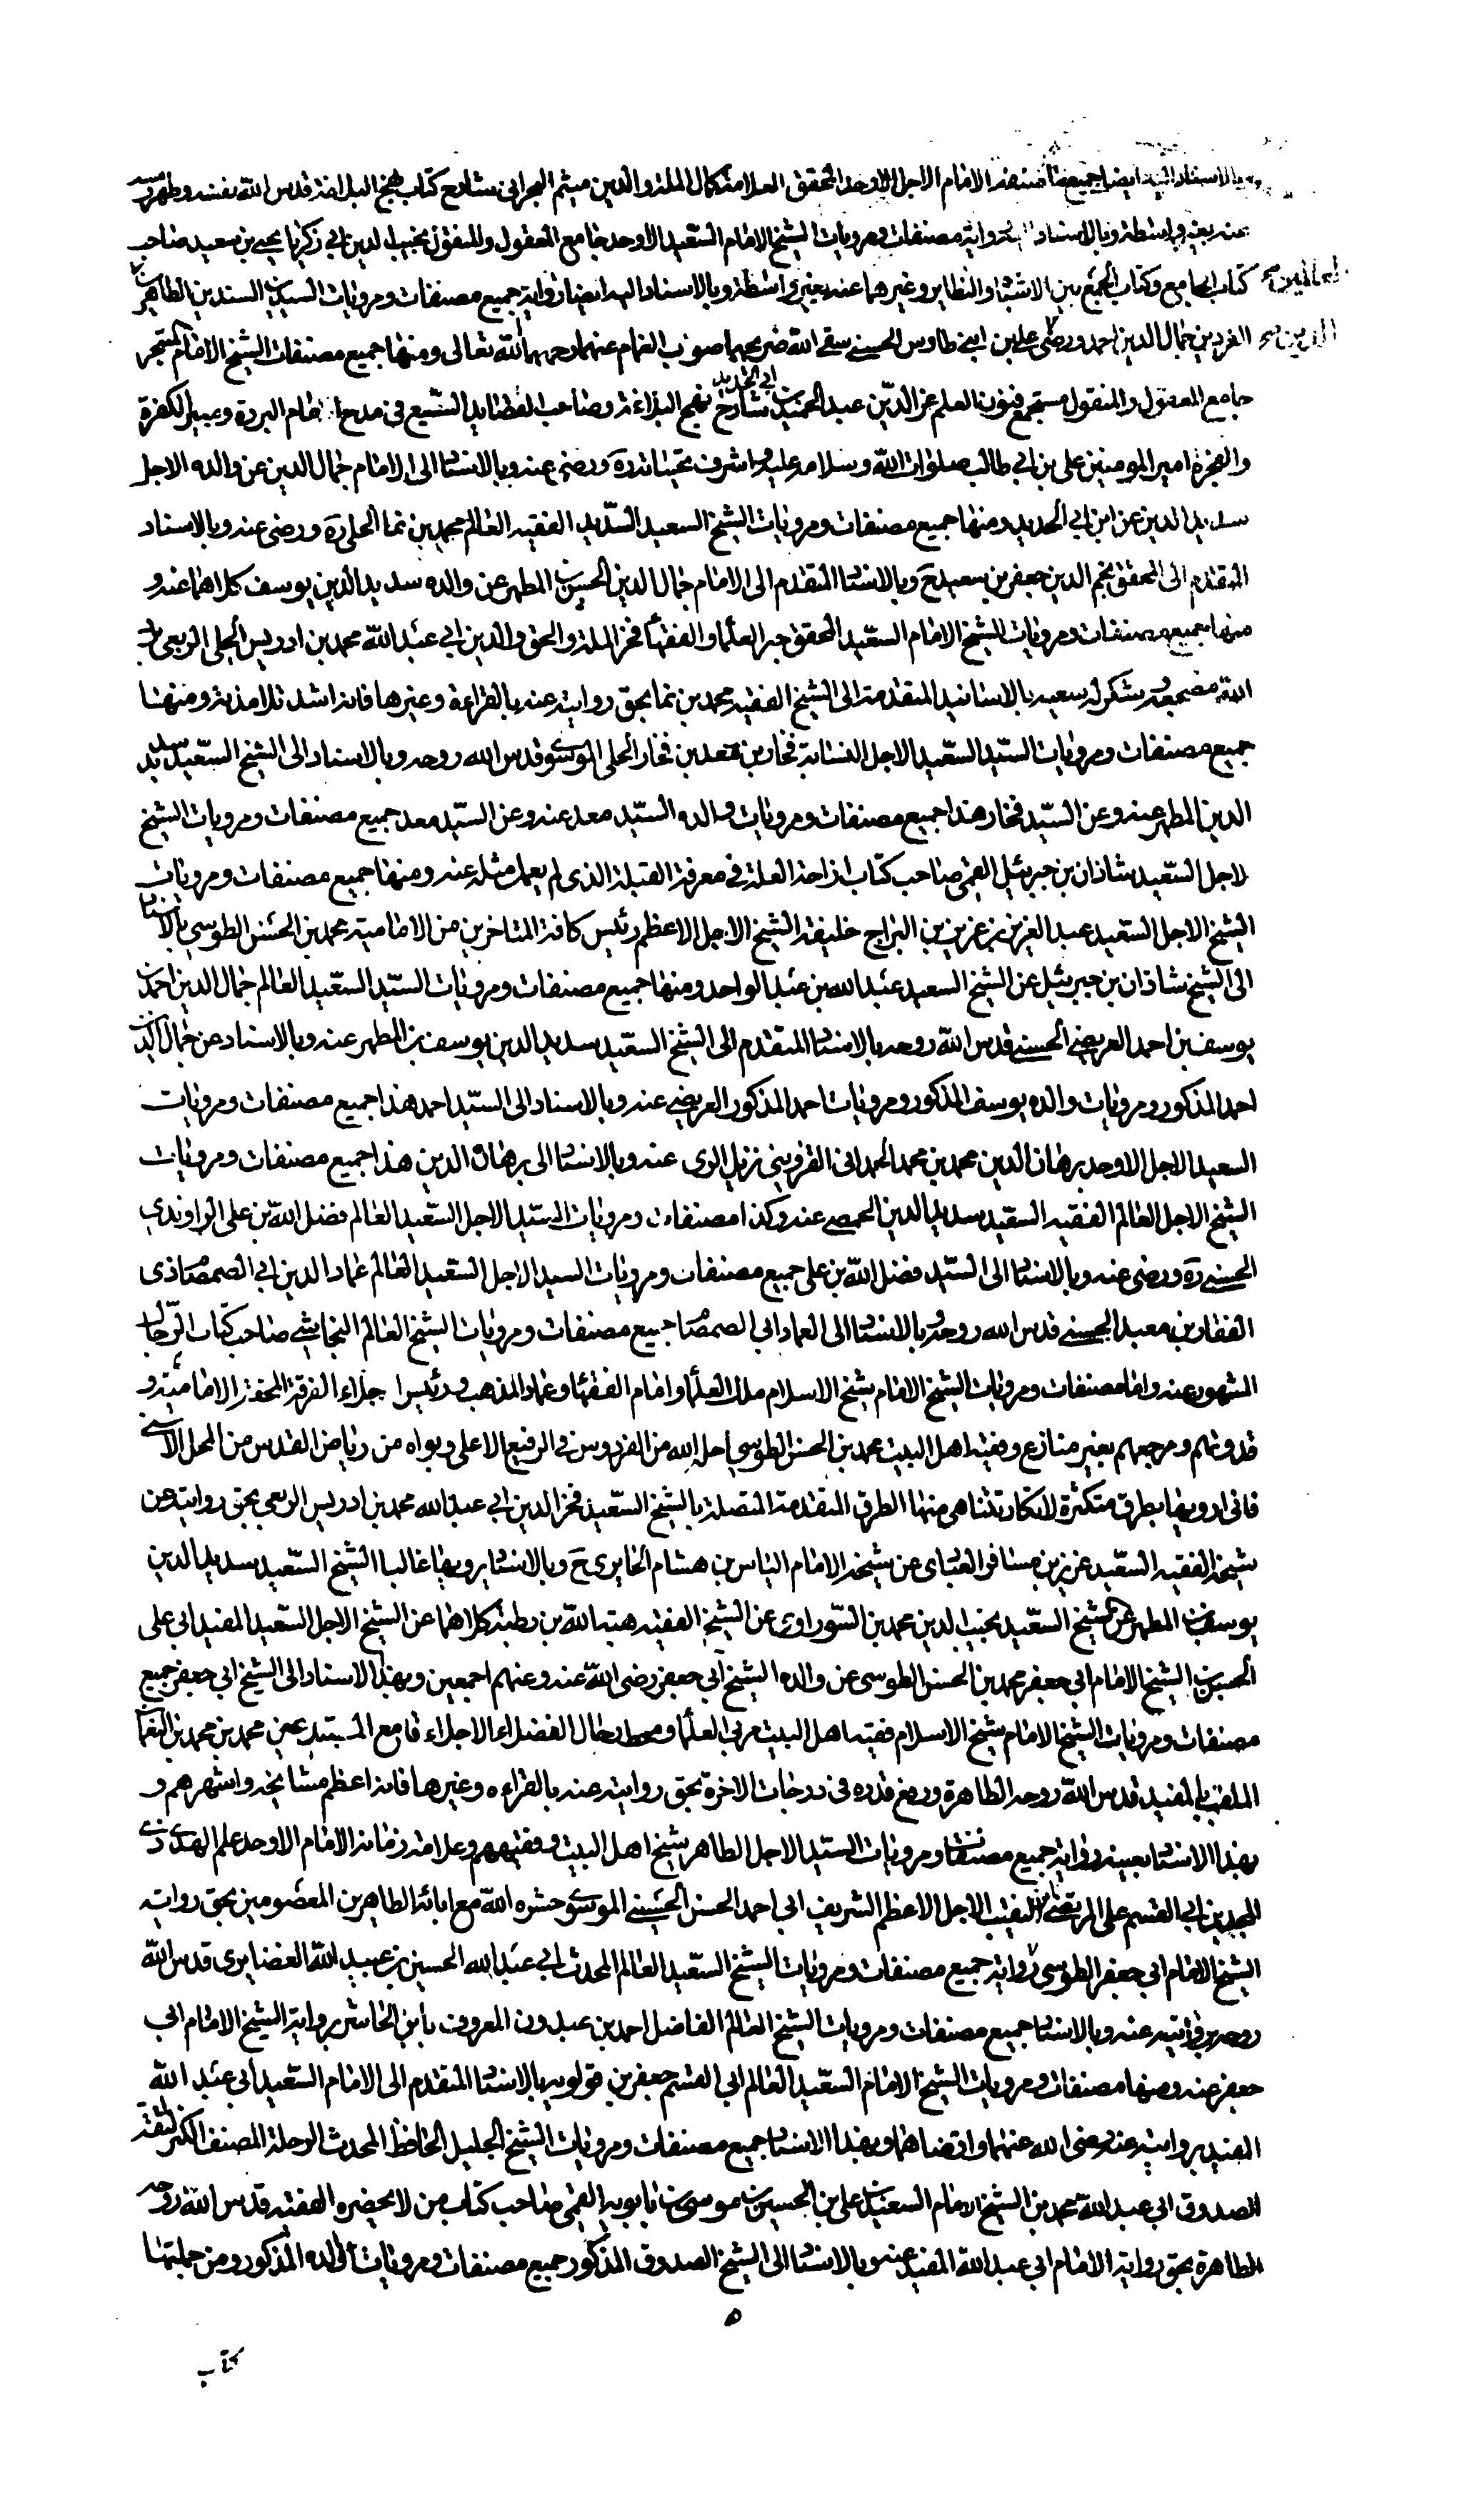 وبالاسناد اليه ايضا جميع ما صنفه الامام الاجل الاوحد المحقق العلامة كمال الملة والدين ميثم البحرانى شارح كتاب نهج البلاغة قدس الله نفسه وطهر رمسه
عنه بغير واسطة وبالاسناد رواية مصنفات ومرويات الشيخ الامام السعيد الاوحد جامع المعقول والمنقول نجيب الدين ابى زكريا يحيى بن سعيد صاحب
كتاب الجامع وكتاب الجمع بين الاشباه والنظاير وغيرهما عنه بغير واسطة وبالاسناد اليه ايضا رواية جميع مصنفات ومرويات السيدين السندين الطاهرين
الفردين جمال الدين احمد ورضى على بن ابنى طاوس الحسنى سقى الله ضريحهما صوب الغمام عنهما رحمهما الله تعالى ومنها جميع مصنفات الشيخ الامام المتبحر
جامع المعقول والمنقول مستجمع فنون العلم عز الدين عبد الحميد بن ابى الحديد شارح نهج البلاغة وصاحب القصايد السبع فى مدح امام البررة ومبير الكفرة
والفجرة امير المومنين على بن ابى طالب صلوات الله وسلامه عليه واشرف تحياته ره ورضى عنه وبالاسناد الى الامام جمال الدين عن والده الاجل
سديد الدين عن ابن ابى الحديد ومنها جميع مصنفات ومرويات الشيخ السعيد السديد الفقيه العالم محمد بن نما الحلى ره ورضى عنه وبالاسناد
المتقدم الى المحقق نجم الدين جعفر بن سعيد ح وبالاسناد المتقدم الى الامام جمال الدين الحسن بن المطهر عن والده سديد الدين يوسف كلاهما عنه و
منها جميع مصنفات ومرويات الشيخ الامام السعيد المحقق حبر العلما والفقها فخر الملة والحق والدين ابى عبد الله محمد بن ادريس الحلى الربعى
الله مضجعه وشكر له سعيه بالاسانيد المتقدمة الى الشيخ الفقيه محمد بن نما بحق روايته عنه بالقراءة وغيرها فانه اشد تلامذته ومنها
جميع مصنفات ومرويات السيد السعيد الاجل النسابة فخار بن معد بن فخار الحلى الموسوى قدس الله روحه وبالاسناد الى الشيخ السعيد سديد
الدين المطهر عنه وعن السيد فخار هذا جميع مصنفات ومرويات والده السيد معد عنه وعن السيد معد جميع مصنفات ومرويات الشيخ
لاجل السعيد شاذان بن جبرئيل القمى صاحب كتاب ازاحة العلة فى معرفة القبلة الذى لم يعمل مثله عنه ومنها جميع مصنفات ومرويات
الشيخ الاجل السعيد عبد العزيز بن البراج خليفة الشيخ الاجل الاعظم رئيس كافة المتاخرين من الامامية محمد بن الحسن الطوسى بالاسناد
الى الشيخ شاذان بن جبرئيل عن الشيخ السعيد عبد الله بن عبد الواحد ومنها جميع مصنفات ومرويات السيد السعيد العالم جمال الدين احمد بن
يوسف بن احمد العريضى الحسينى قدس الله روحه بالاسناد المتقدم الى الشيخ السعيد سديد الدين يوسف بن المطهر عنه وبالاسناد عن جمال الدين
احمد المذكور ومرويات والده يوسف المذكور ومرويات احمد المذكور العريضى عنه وبالاسناد الى السيد احمد هذا جميع مصنفات ومرويات
السعيد الاجل الاوحد برهان الدين محمد بن محمد الحمدانى القزوينى نزيل الرى عنه وبالاسناد الى برهان الدين هذا جميع مصنفات ومرويات
الشيخ الاجل العالم الفقيه السعيد سديد الدين الحمصى عنه وكذا مصنفات ومرويات السيد الاجل السعيد العالم فضل الله بن على الراوندى
الحسنى ره ورضى عنه وبالاسناد الى السيد فضل الله بن على جميع مصنفات ومرويات السيد الاجل السعيد العالم عماد الدين ابى الصمصام ذى
الفقار بن معبد الحسنى قدس الله روحه وبالاسناد الى العماد ابى الصمصام جميع مصنفات ومرويات الشيخ العالم النجاشى صاحب كتاب الرجال
المشهور عنه واما مصنفات ومرويات الشيخ الامام شيخ الاسلام ملك العلما وامام الفقها وعماد المذهب ورئيس اجلاء الفرقة المحقة الامامية و
قدوتهم ومرجعهم بغير منازع وفقيه اهل البيت محمد بن الحسن الطوسى احله الله من الفردوس فى الرفيع الاعلى وبواه من رياض القدس من المحل الاسنى
فانى ارويها بطرق متكثرة لا تكاد تتناهى منها الطرق المتقدمة المتصلة بالشيخ السعيد فخر الدين ابى عبد الله محمد بن ادريس الربعى بحق روايته عن
شيخه الفقيه السعيد عربى بن مسافر العبادى عن شيخه الامام الياس بن هشام الحايرى ح وبالاسناد يرويها غالبا الشيخ السعيد سديد الدين
يوسف بن المطهر عن الشيخ السعيد نجيب الدين محمد بن السوراوى عن الشيخ الفقيه هبة الله بن رطبة كلاهما عن الشيخ الاجل السعيد المفيد ابى على
الحسن بن الشيخ الامام ابى جعفر محمد بن الحسن الطوسى عن والده الشيخ ابى جعفر رضى الله عنه وعنهم اجمعين وبهذا الاسناد الى الشيخ ابى جعفر جميع
مصنفات ومرويات الشيخ الامام شيخ الاسلام فقيه اهل البيت مربى العلما ومحط رحال الفضلاء الاجلاء قامع المبتدعين محمد بن محمد بن النعمان
الملقب بالمفيد قدس الله روحه الطاهرة ورفع قدره فى درجات الاخرة بحق روايته عنه بالقراءه وغيرها فانه اعظم مشايخه واشهرهم و
بهذا الاسناد بعينه رواية جميع مصنفات ومرويات السيد الاجل الطاهر شيخ اهل البيت وفقيههم وعلامة زمانه الامام الاوحد علم الهدى ذى
المجدين ابى القسم على المرتضى ابن النقيب الاجل الاعظم الشريف ابى احمد الحسن الحسينى الموسوى حشره الله مع ابائه الطاهرين المعصومين بحق رواية
الشيخ الامام ابى جعفر الطوسى رواية جميع مصنفات ومرويات الشيخ السعيد العالم المحدث ابى عبد الله الحسين بن عبيد الله الغضايرى قدس الله
روحه بروايته عنه وبالاسناد جميع مصنفات ومرويات الشيخ العالم الفاضل احمد بن عبدون المعروف بابن الحاشر برواية الشيخ الامام ابى
جعفر عنه ومنها مصنفات ومرويات الشيخ الامام السعيد العالم ابى القسم جعفر بن قولويه بالاسناد المتقدم الى الامام السعيد ابى عبد الله
المفيد بروايته عنه رضى الله عنهما وارضاهما وبهذا الاسناد جميع مصنفات ومرويات الشيخ الجليل الحافظ المحدث الرحلة المصنف الكبير الثقة
الصدوق ابى عبد الله محمد بن الشيخ الامام السعيد على بن الحسين بن موسى بن بابويه القمى صاحب كتاب من لا يحضره الفقيه قدس الله روحه
الطاهرة بحق رواية الامام ابى عبد الله المفيد عنه وبالاسناد الى الشيخ الصدوق المذكور جميع مصنفات ومرويات والده المذكور ومن جملتها
كتاب